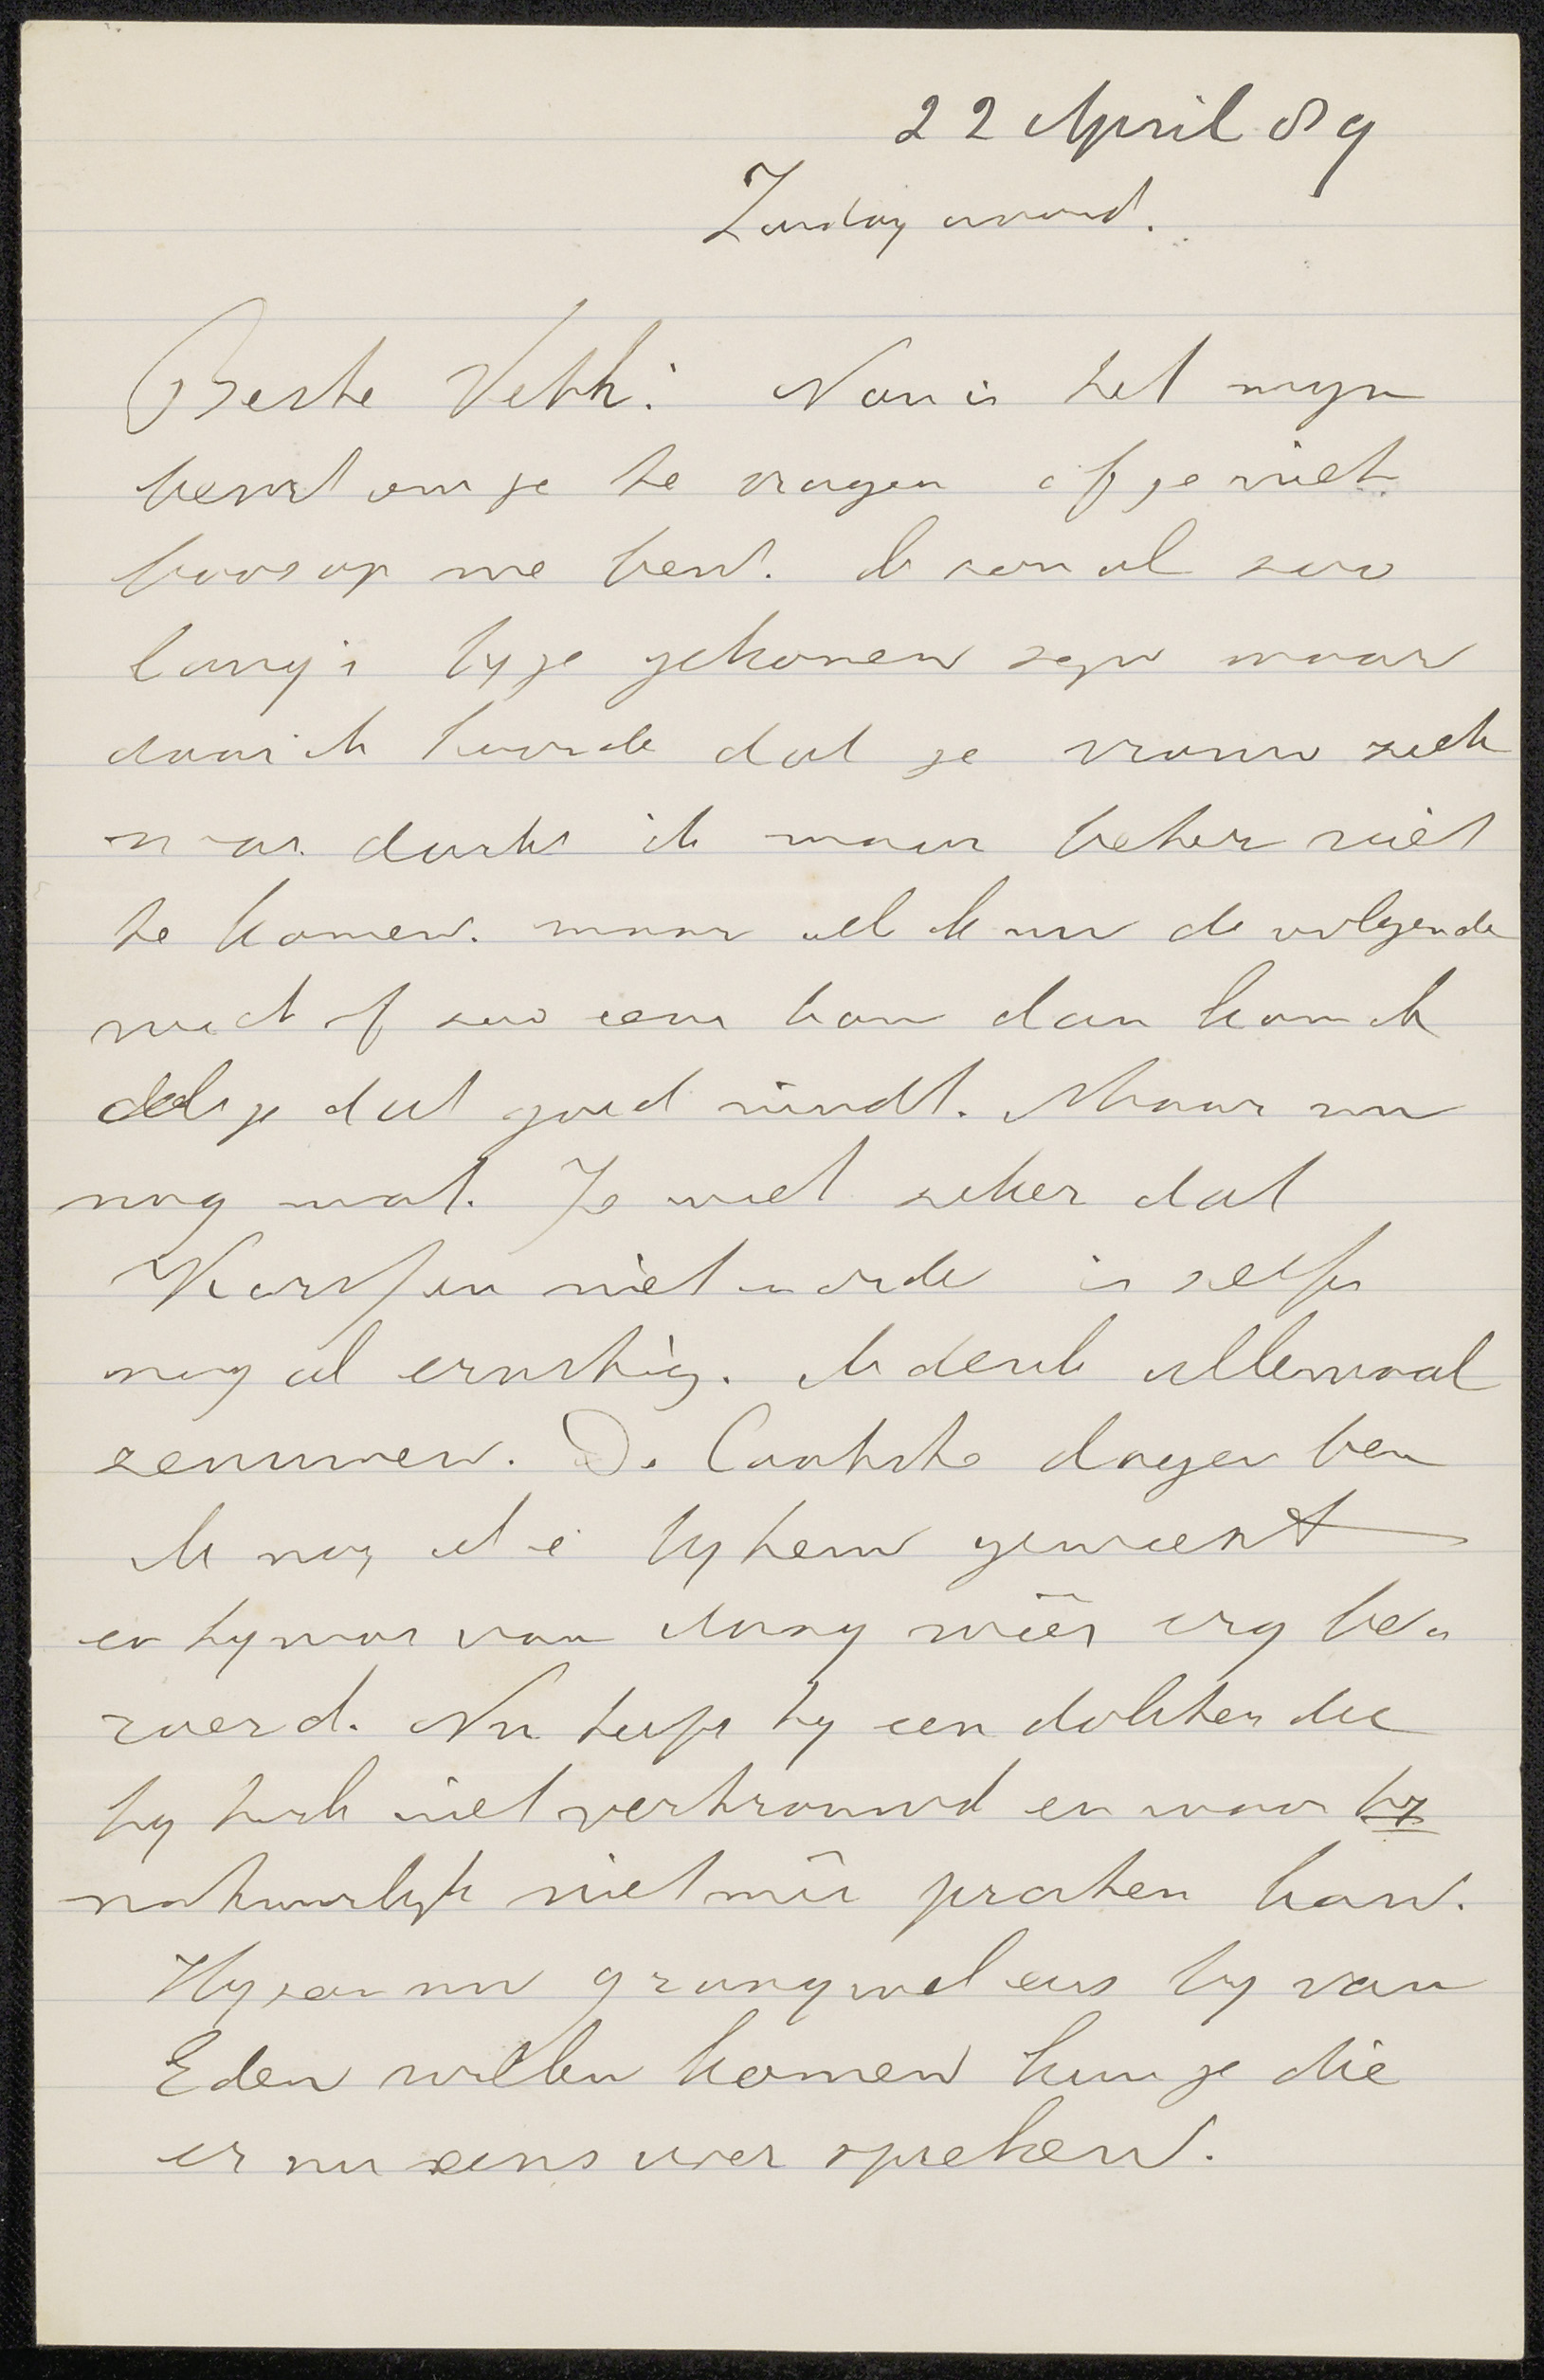 22 April 89
Zondag avond.
Beste Veth. Nou is het mijn
beurt om je te vragen of je niet
boos op me bent. Ik zou al zoo
lang's bij je gekomen zijn maar
daar ik hoorde dat je vrouw ziek
was dacht ik maar beter niet
te komen. maar als ik nu de volgende
week of zoo eens kan dan kom ik
als je dat goed vindt. Maar nu
nog wat. Je weet zeker dat
Karsen niet in orde is zelfs
nog al ernstig. Ik denk allemaal
zenuwen. De laatste dagen ben
ik nog al's bij hem geweest
en hij was van daag weêr erg be-
roerd. Nu heeft hij een dokter die
hij toch niet vertrouwd en waar hij
natuurlijk niet meê praten kan.
Hij zou nu graag wel eens bij van
Eden willen komen kun je die
er nu eens over spreken.